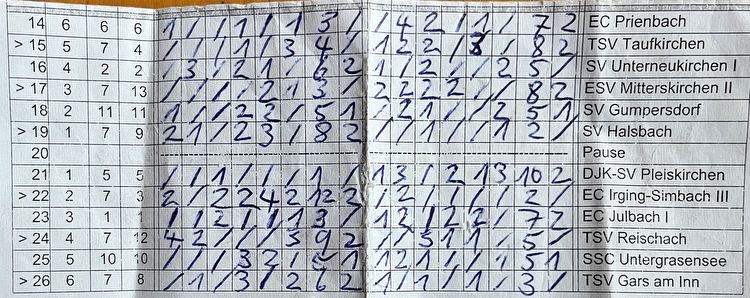 14 6 6 6 1 / / 1 / 1 3 / / 4 2 / 1 / 7 2 EC Prienbach
> 15 5 7 4 / / / 1 / 3 4 / 1 2 2 / 3 / 8 2 TSV Taufkirchen
16 4 2 2 / 3 / 2 1 / 6 2 1 / 2 / / 2 5 / SV Unterneukirchen I
> 17 3 7 13 / / / / 2 1 3 / 2 2 2 2 / / 8 2 ESV Mitterskirchen II
18 2 11 11 1 / / 2 2 / 5 1 / 2 1 / / 2 5 1 SV Gumpersdorf
> 19 1 7 9 2 1 / 2 3 / 8 2 / / 1 / / 1 2 / SV Halsbach
20 Pause
21 1 5 5 / / 1 / / / 1 / 1 3 / 2 1 3 10 2 DJK-SV Pleiskirchen
> 22 2 7 3 2 / 2 2 4 2 12 2 / 2 / / / / 2 / EC Irging-Simbach III
23 3 1 1 1 / 2 / / / 3 / 1 2 / 2 2 / 7 2 EC Julbach I
> 24 4 7 12 4 2 / / / 3 9 2 / / 3 1 1 / 5 / TSV Reischach
25 5 10 10 / / / 3 2 / 5 1 1 2 1 1 / / 5 1 SSC Untergrasensee
> 26 6 7 8 / 1 / 3 / 2 6 2 1 / 1 / 1 / 3 / TSV Gars am Inn